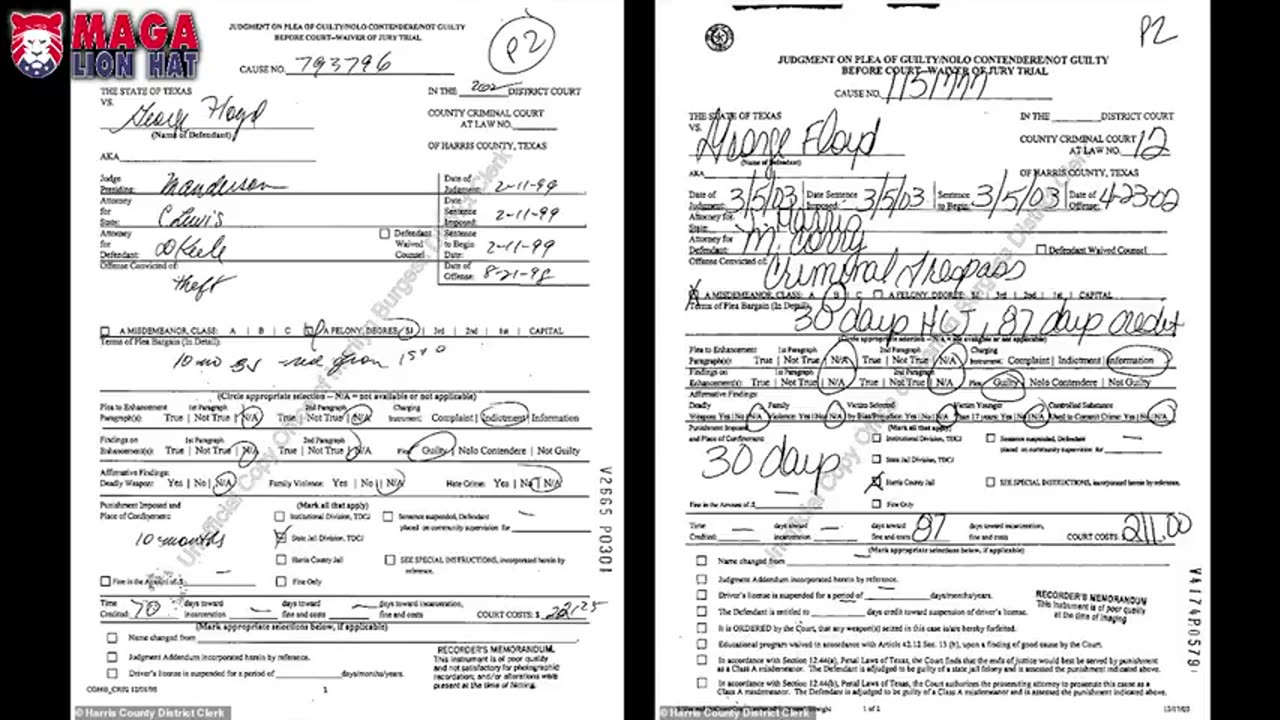 MAGA
LION HAT
JUDGMENT ON PLEA OF GUILTY/NOLO CONTENDERE/NOT GUILTY
BEFORE COURT–WAIVER OF JURY TRIAL
P2
CAUSE NO. 793796
THE STATE OF TEXAS
VS.
IN THE DISTRICT COURT
George Floyd
(Name of Defendant)
COUNTY CRIMINAL COURT
AT LAW NO.
AKA
OF HARRIS COUNTY, TEXAS
Judge
Presiding:
Date of
Judgment: 2-11-99
Attorney
for
State: C Lewis
Date
Sentence
Imposed: 2-11-99
Attorney
for
Defendant:
Defendant
Waived
Counsel
Sentence
to Begin
Date: 2-11-99
Offense Convicted of:
theft
Date of
Offense: 8-21-98
A MISDEMEANOR, CLASS: A | B | C A FELONY, DEGREE: SJ | 3rd | 2nd | 1st | CAPITAL
Terms of Plea Bargain (In Detail):
10 mo SJ
(Circle appropriate selection – N/A = not available or not applicable)
Plea to Enhancement
Paragraph(s): 1st Paragraph True | Not True | N/A 2nd Paragraph True | Not True | N/A Charging Instrument: Complaint | Indictment | Information
Findings on
Enhancement(s): 1st Paragraph True | Not True | N/A 2nd Paragraph True | Not True | N/A Plea: Guilty | Nolo Contendere | Not Guilty
Affirmative Findings:
Deadly Weapon: Yes | No | N/A Family Violence: Yes | No | N/A Hate Crime: Yes | No | N/A
Punishment Imposed and
Place of Confinement:
(Mark all that apply)
Institutional Division, TDCJ
Sentence suspended, Defendant
placed on community supervision for
10 months
State Jail Division, TDCJ
Harris County Jail
SEE SPECIAL INSTRUCTIONS, incorporated herein by
reference.
Fine in the Amount of $
Fine Only
Time
Credited: 70 days toward
incarceration
days toward
fine and costs
days toward incarceration,
fine and costs
COURT COSTS: $
(Mark appropriate selections below, if applicable)
Name changed from
Judgment Addendum incorporated herein by reference.
Driver's license is suspended for a period of days/months/years.
RECORDER'S MEMORANDUM.
This instrument is of poor quality
and not satisfactory for photographic
recordation; and/or alterations were
present at the time of filming.
1
V2665 P0301
Unofficial Copy Office of Marilyn Burgess District Clerk
© Harris County District Clerk
P2
JUDGMENT ON PLEA OF GUILTY/NOLO CONTENDERE/NOT GUILTY
BEFORE COURT–WAIVER OF JURY TRIAL
CAUSE NO.
THE STATE OF TEXAS
VS.
IN THE DISTRICT COURT
George Floyd
(Name of Defendant)
COUNTY CRIMINAL COURT
AT LAW NO. 12
AKA
OF HARRIS COUNTY, TEXAS
Date of
Judgment: 3/5/03 Date Sentence
Imposed: 3/5/03 Sentence
to Begin: 3/5/03 Date of
Offense: 4-23-02
Attorney for
State:
Attorney for
Defendant:
Defendant Waived Counsel
Offense Convicted of: Criminal Trespass
A MISDEMEANOR, CLASS: A | B | C A FELONY, DEGREE: SJ | 3rd | 2nd | 1st | CAPITAL
Terms of Plea Bargain (In Detail):
30 days HCJ, 87 days credit
(Circle appropriate selection – N/A = not available or not applicable)
Plea to Enhancement
Paragraph(s): 1st Paragraph True | Not True | N/A 2nd Paragraph True | Not True | N/A Charging Instrument: Complaint | Indictment | Information
Findings on
Enhancement(s): 1st Paragraph True | Not True | N/A 2nd Paragraph True | Not True | N/A Plea: Guilty | Nolo Contendere | Not Guilty
Affirmative Findings:
Deadly
Weapon: Yes | No | N/A Family
Violence: Yes | No | N/A Victim Selected
by Bias/Prejudice: Yes | No | N/A Victim Younger
Than 17 years: Yes | No | N/A Controlled Substance
Used to Commit Crime: Yes | No | N/A
Punishment Imposed
and Place of Confinement:
(Mark all that apply)
Institutional Division, TDCJ
Sentence suspended, Defendant
placed on community supervision for
30 days
State Jail Division, TDCJ
Harris County Jail
SEE SPECIAL INSTRUCTIONS, incorporated herein by reference.
Fine in the Amount of $
Fine Only
Time
Credited: days toward
incarceration
days toward
fine and costs 87 days toward incarceration,
fine and costs
COURT COSTS: 211.00
(Mark appropriate selections below, if applicable)
Name changed from
Judgment Addendum incorporated herein by reference.
Driver's license is suspended for a period of days/months/years.
The Defendant is entitled to days credit toward suspension of driver's license.
It is ORDERED by the Court, that any weapon(s) seized in this case is/are hereby forfeited.
Educational program waived in accordance with Article 42.12 Sec. 13 (h), upon a finding of good cause by the Court.
In accordance with Section 12.44(a), Penal Laws of Texas, the Court finds that the ends of justice would best be served by punishment
as a Class A misdemeanor. The Defendant is adjudged to be guilty of a state jail felony and is assessed the punishment indicated above.
In accordance with Section 12.44(b), Penal Laws of Texas, the Court authorizes the prosecuting attorney to prosecute this case as a
Class A misdemeanor. The Defendant is adjudged to be guilty of a Class A misdemeanor and is assessed the punishment indicated above.
RECORDER'S MEMORANDUM
This instrument is of poor quality
at the time of imaging
1 of 2
© Harris County District Clerk